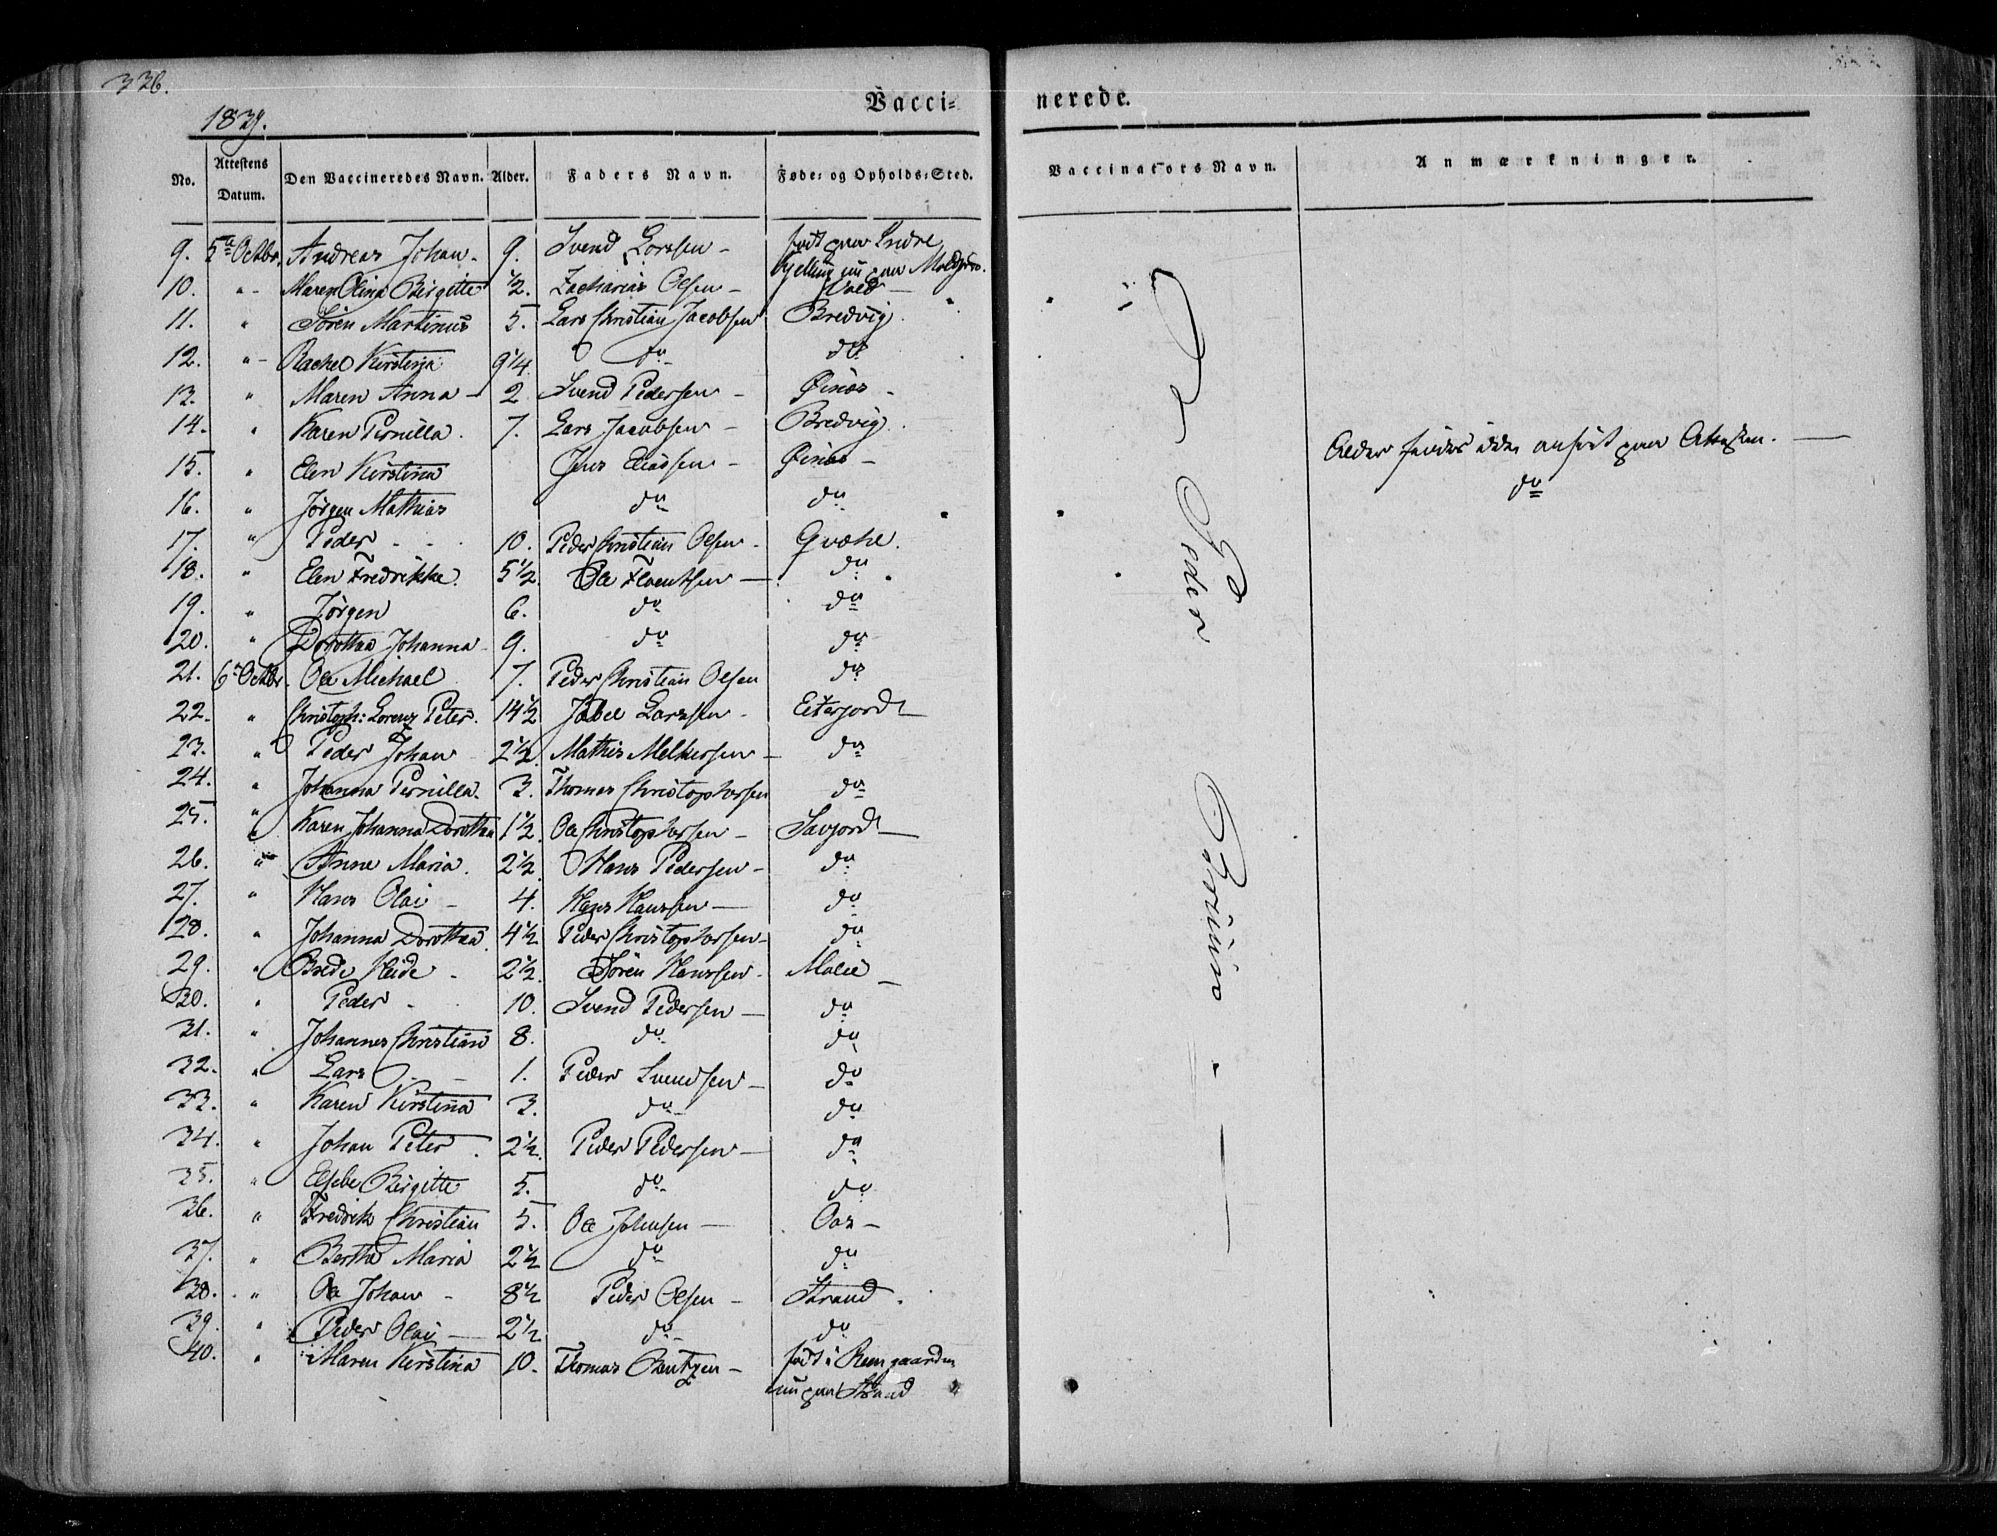 336.
1839.
Vacci- nerede.
No. Attestens Datum. Den Vaccineredes Navn. Alder. Faders Navn. Føde- og Opholds-Sted. Vaccinateurs Navn. Anmærkninger.
9. 5te Octbr. Andreas Johan - 9. Svend Larssen - født paa Indre Kjelling nu paa
10. " - Maren Olina Birgitte 1/2. Zacharias Olsen - Vold -
11. " Sören Martinus 5. Lars Christian Jacobsen Bredvig.
12. " - Rachel Kirstina 9 1/4. do do
13. " Maren Anna - 2 Svend Pedersen - Øinæs -
14. " Karen Pernilla. 7. Lars Jacobsen - Bredvig.
15. " Elen Kirstina Jens Eliassen - Øinæs - Alder findes ikke anført paa Attesten. -
16. " Jörgen Mathias do do do
17. " Peder - - 10. Peder Christian Olsen - Qvæhl.
18. " Elen Fredrikke. 5 1/2. Ole - do
19. " Jörgen 6. do do
20. " Dorothea Johanna - 9. do do
21. 6te Octbr. Ole Michael 7. Peder Christian Olsen do
22. " Christoph: Lorenz Peter. 14 1/2 Larssen - Eiterjord -
23. " Peder Johan 2 1/2. Mathis Melkersen - do
24. " Johanna Pernilla. 3. Thomas Christophersen do
25. " Karen Johanna Dorothea 1 1/2 Ole Christophersen - Savjord -
26. " Anne Maria. 2 1/2. Hans Pedersen - do
27. " Hans Olai - 4. Hans Hanssen - do
28. " Johanna Dorothea 4 1/2 Peder Christophersen - do
29. " Brede Heide - 2 1/2 Sören Hanssen -
30. " Peder - 10. Svend Pedersen - do
31. " Johannes Christian 8. do do
32. " Lars - 1. Peder Svendsen - do
33. " Karen Kirstina 3. do do
34. " Johan Peter. 2 1/2. Peder Pedersen - do
35. " Elsebe Birgitte 5. do do
36. " Fredrik Christian 5. Ole Johnsen - Oos -
37. " Bertha Maria 2 1/2 do do
38. " Ole Johan - 8 1/2 Peder Olsen - Strand.
39. " Peder Olai - 2 1/2 do do
40. " Maren Kirstina 10. Thomas Bentzen - født i
nu paa Strand